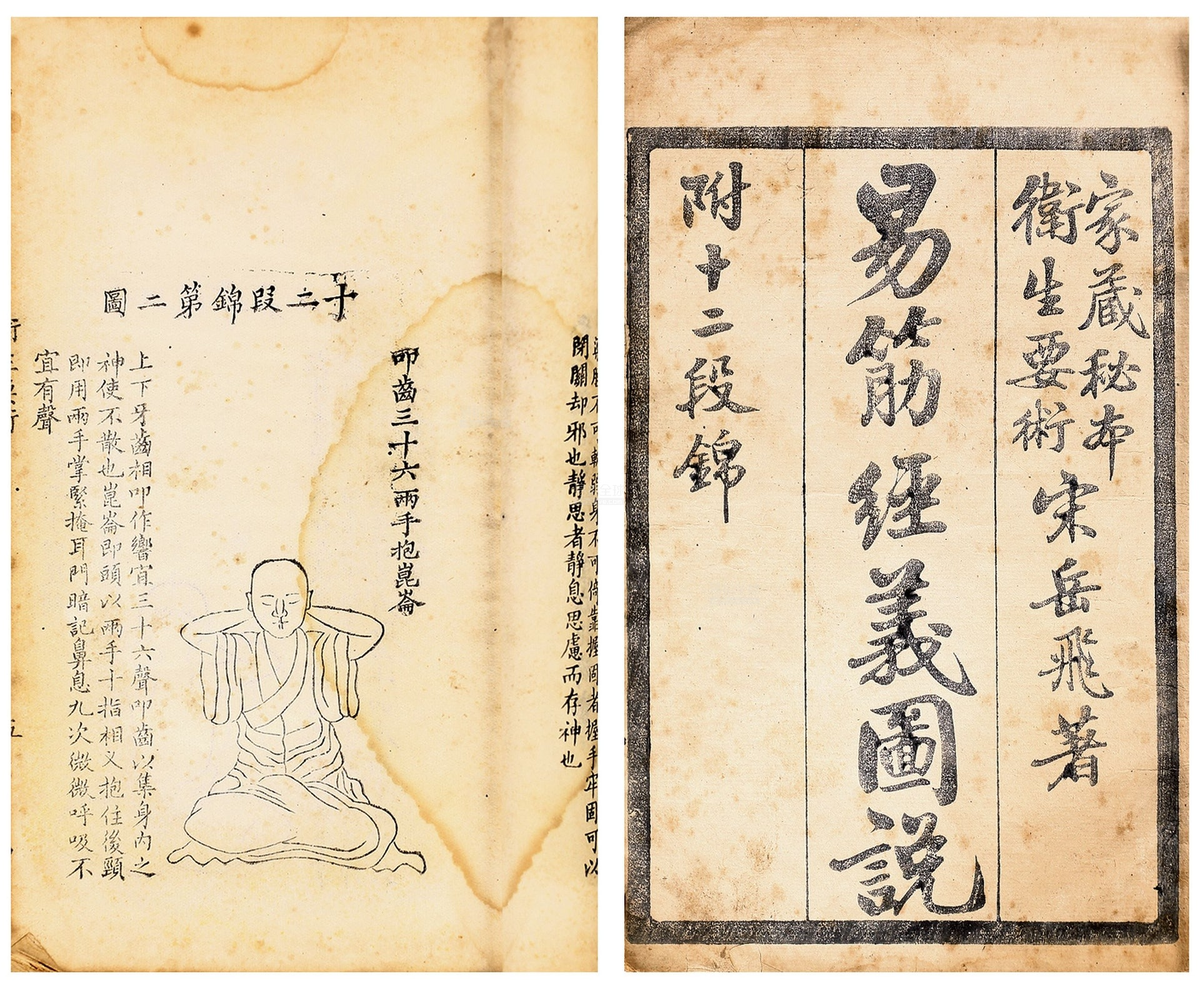 家藏秘本
衛生要術
宋岳飛著
易筋經義圖說
附十二段錦
不可軟弱身不可倚靠握固者握手牢固可以
閉關却邪也靜思者靜息思慮而存神也
十二段錦第二圖
叩齒三十六兩手抱崑崙
上下牙齒相叩作響宜三十六聲叩齒以集身內之
神使不散也崑崙即頭以兩手十指相叉抱住後頸
即用兩手掌緊掩耳門暗記鼻息九次微微呼吸不
宜有聲